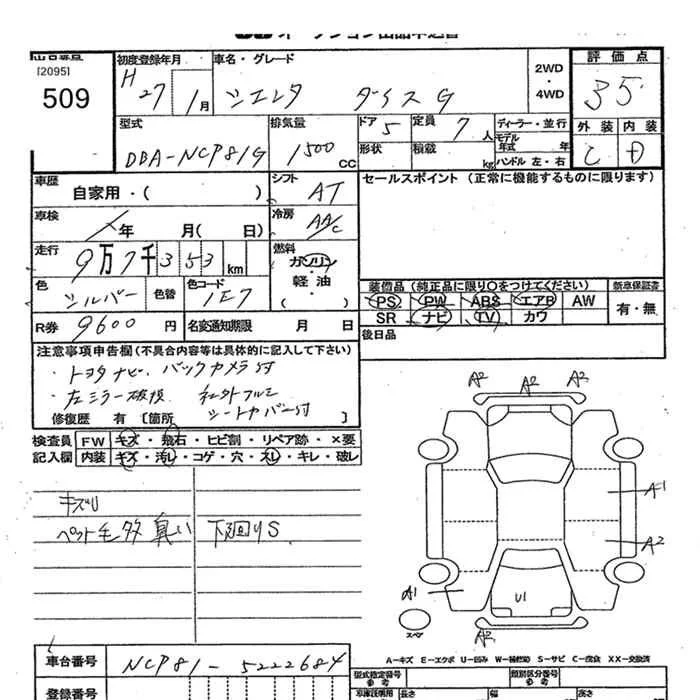 オークション出品申込書
[2095]
509
初度登録年月
H
27
1月
車名・グレード
シエンタ ダイス G
2WD
・
4WD
評価点
35
型式
DBA-NCP81G
排気量
1500
CC
ドア 5
形状
定員 7人
積載
kg
ディーラー・並行
モデル
年式 年
ハンドル 左・右
外装 内装
C D
車歴
自家用・( )
シフト
AT
セールスポイント (正常に機能するものに限ります)
車検
年 月( 日)
冷房
AA/C
走行
9万7千353km
燃料
ガソリン
軽油
・
( )
色
シルバー
色替
色コード
1E7
R券 9600 円
名変通知期限 月 日
装備品 (純正品に限り○をつけてください)
新車保証書
PS PW ABS エアB AW
SR ナビ TV カワ
有・無
後日品
注意事項申告欄 (不具合内容等は具体的に記入して下さい)
・トヨタナビ、バックカメラ付
・左ミラー破損 社外フルミ
シートカバー付
修復歴 有 〔箇所 〕
検査員
記入欄
FW キズ・飛石・ヒビ割・リペア跡・×要
内装 キズ・汚レ・コゲ・穴・スレ・キレ・破レ
キズU
ペット毛多臭い 下回りS
A2 A2 A2
A1
A2
A1
U1
A2
スペア
A-キズ E-エクボ U-凹み W-補修跡 S-サビ C-腐食 XX-交換済
車台番号
NCP81-5222684
登録番号
型式指定番号
参考
類別区分番号
参考
車庫証明用
長さ
幅
高さ